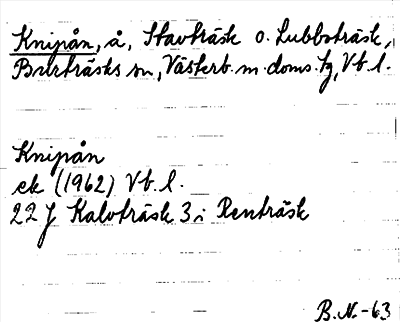 Knipån, å, Stavträsk o. Lubboträsk,
Burträsks sn, Västerb. m. doms. tg, Vb. l.
Knipån
ek (1962) Vb. l.
22 J Kalvträsk 3 i Renträsk
B.N.-63